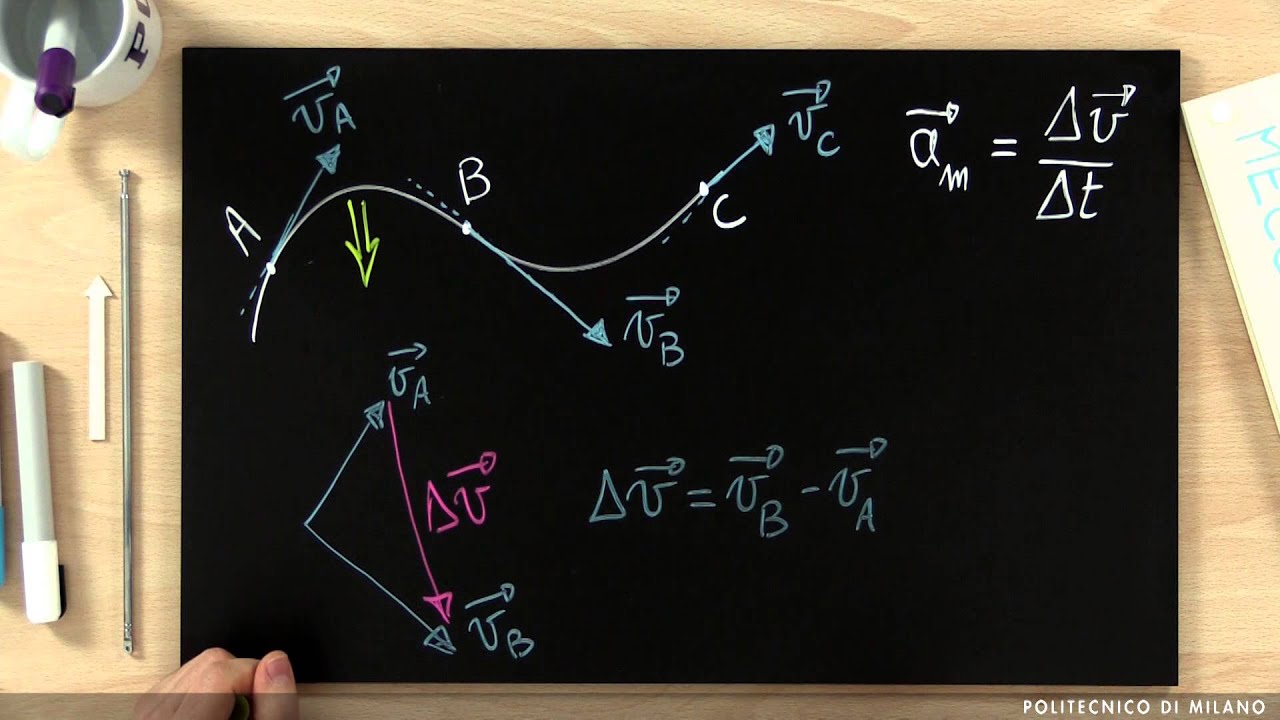 v⃗_A
A
B
v⃗_B
C
v⃗_C
a⃗_m = Δv⃗ / Δt
v⃗_A
Δv⃗
v⃗_B
Δv⃗ = v⃗_B - v⃗_A
POLITECNICO DI MILANO